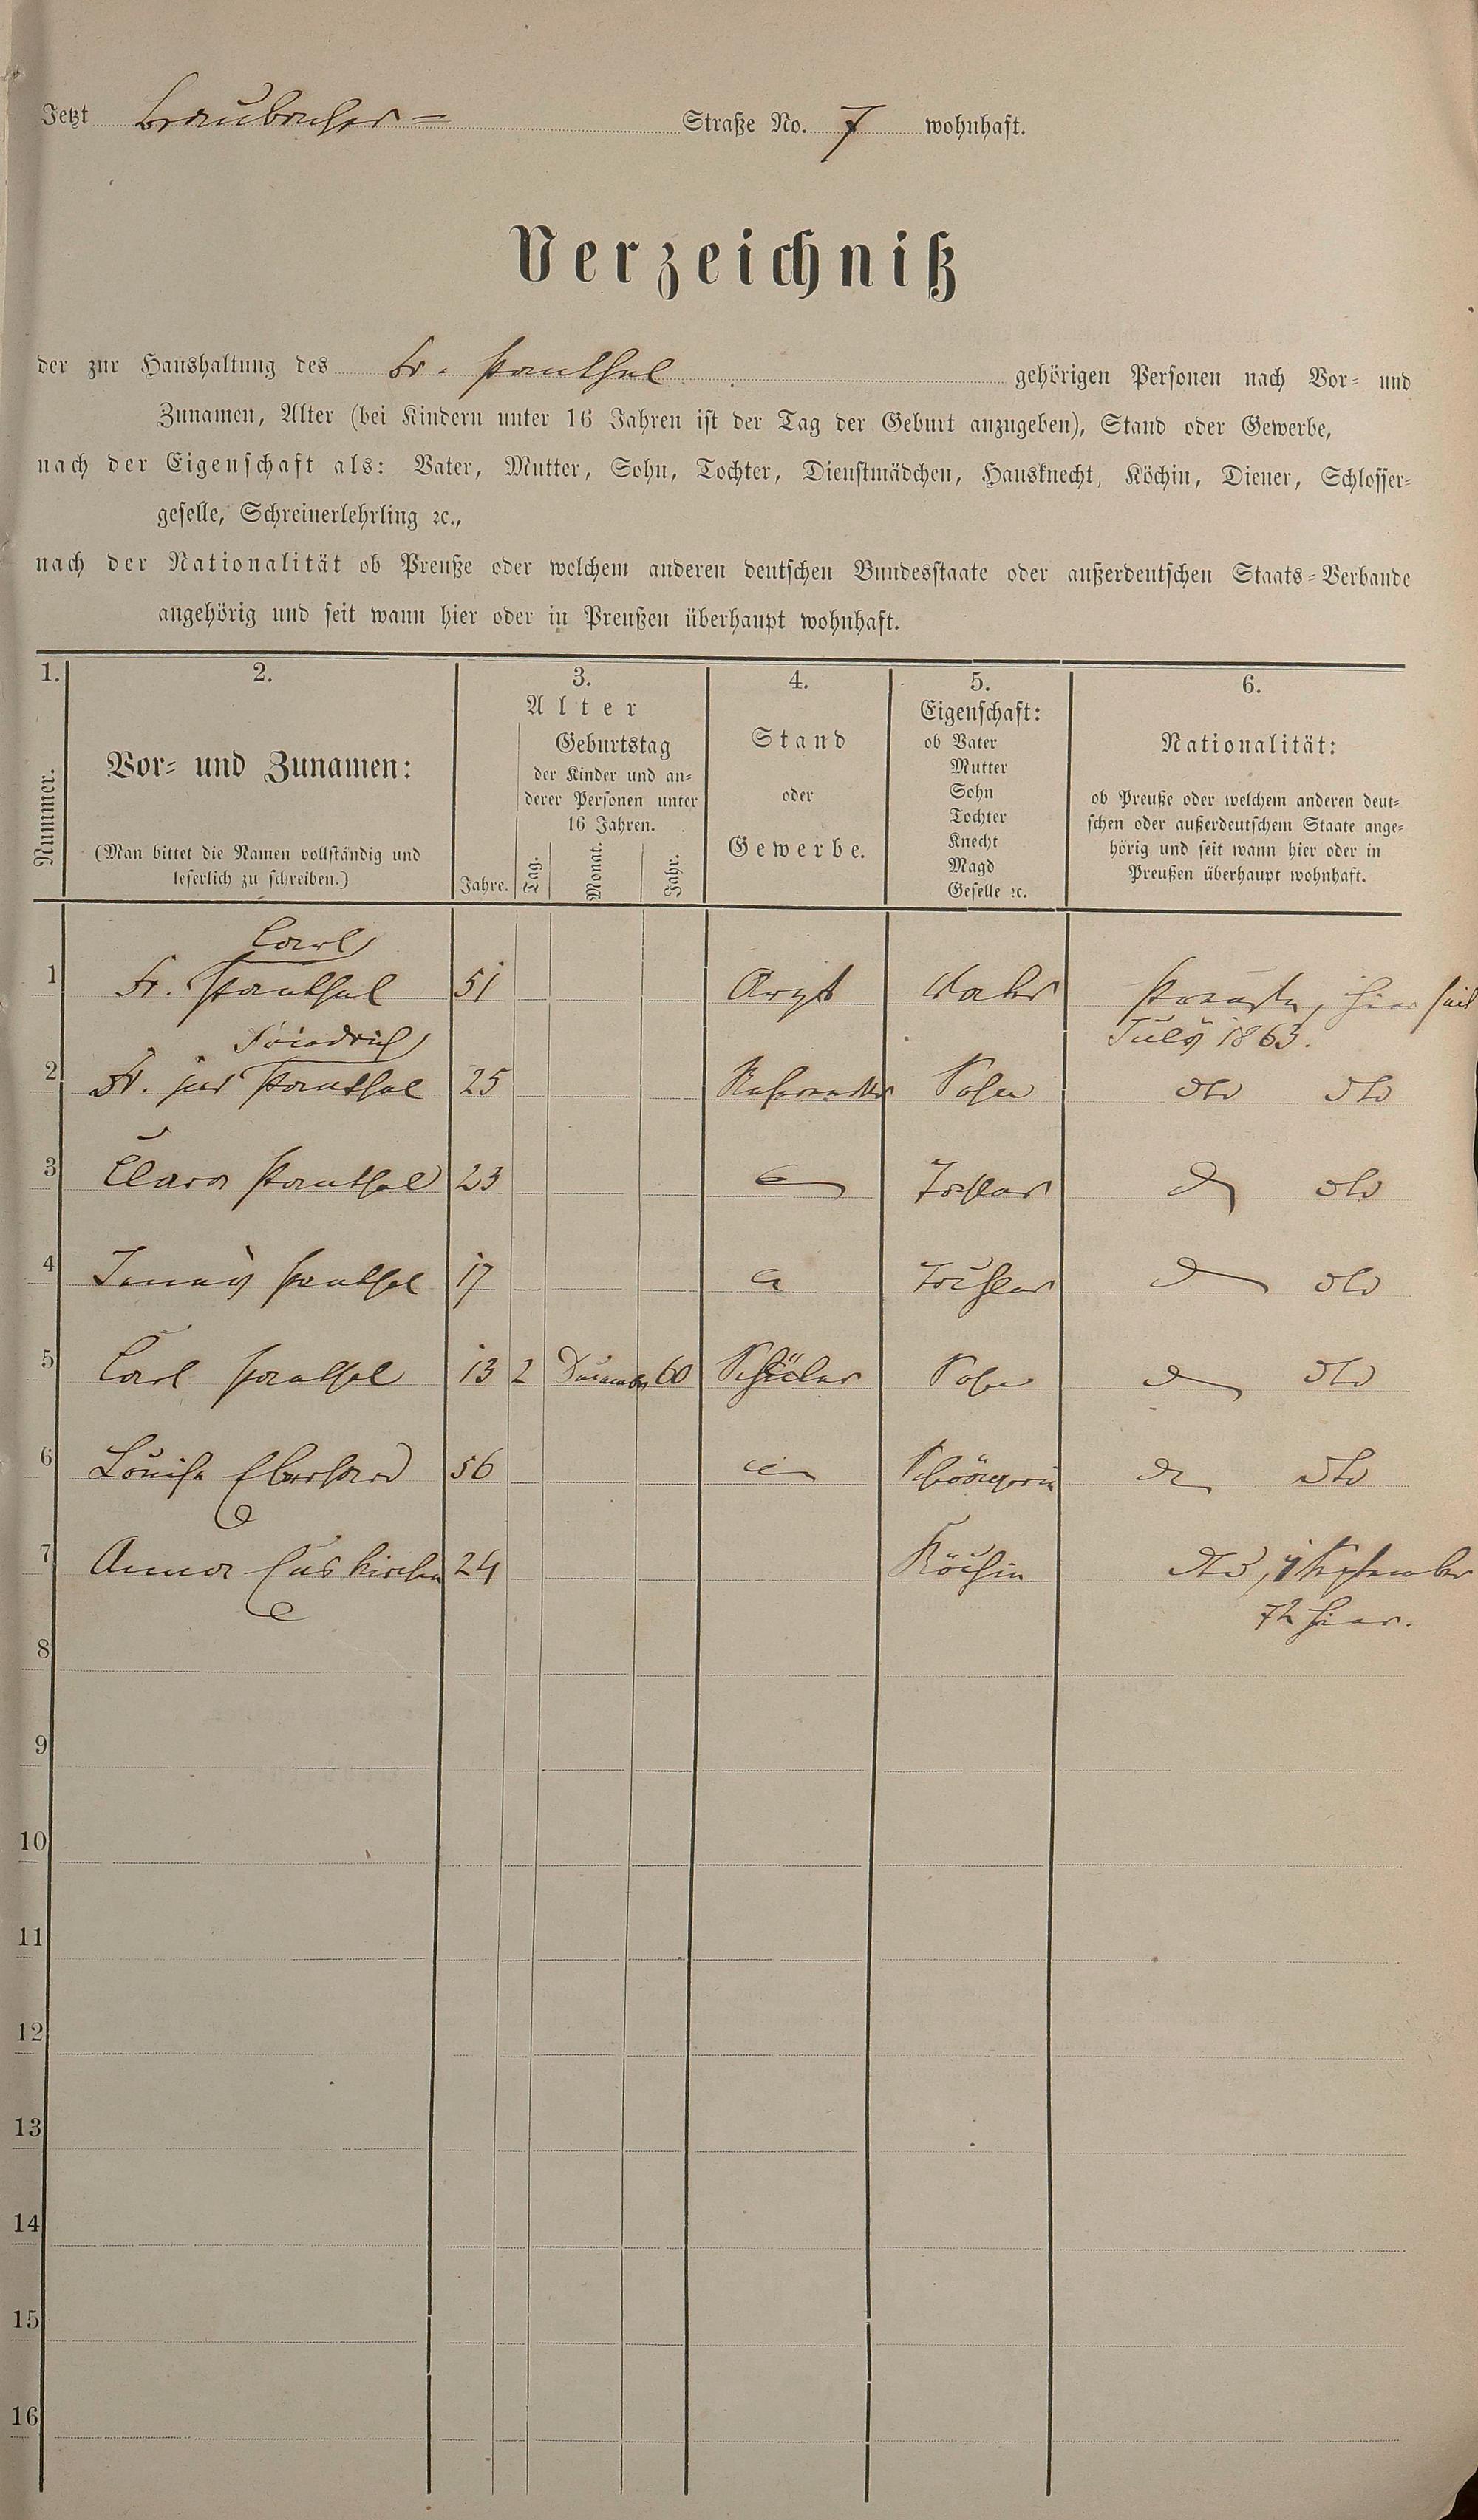 Jetzt Braubacher- Straße No. 7 wohnhaft.
Verzeichniß
der zur Haushaltung des Dr. Panthel gehörigen Personen nach Vor- und
Zunamen, Alter (bei Kindern unter 16 Jahren ist der Tag der Geburt anzugeben), Stand oder Gewerbe,
nach der Eigenschaft als: Vater, Mutter, Sohn, Tochter, Dienstmädchen, Hausknecht, Köchin, Diener, Schlosser-
geselle, Schreinerlehrling ꝛc.,
nach der Nationalität ob Preuße oder welchem anderen deutschen Bundesstaate oder außerdeutschen Staats-Verbande
angehörig und seit wann hier oder in Preußen überhaupt wohnhaft.
1. 2. 3. 4. 5. 6.
Nummer.
Vor- und Zunamen:
(Man bittet die Namen vollständig und
leserlich zu schreiben.)
Alter
Jahre.
Geburtstag
der Kinder und an-
derer Personen unter
16 Jahren.
Tag. Monat. Jahr.
Stand
oder
Gewerbe.
Eigenschaft:
ob Vater
Mutter
Sohn
Tochter
Knecht
Magd
Geselle ꝛc.
Nationalität:
ob Preuße oder welchem anderen deut-
schen oder außerdeutschem Staate ange-
hörig und seit wann hier oder in
Preußen überhaupt wohnhaft.
Carl
1 Dr. Panthel 51 Arzt Vater Preuße, hier seit
July 1863.
Friedrich
2 Dr. jur Panthel 25 Referendar Sohn dto dto
3 Clara Panthel 23 Tochter do dto
4 Jenny Panthel 17 Tochter do dto
5 Carl Panthel 13 2 December 60 Schüler Sohn do dto
6 Louise Eberhard 56 Schwägerin do dto
7 Anna Euskirchen 24 Köchin dto, 1 September
72 hier.
8
9
10
11
12
13
14
15
16